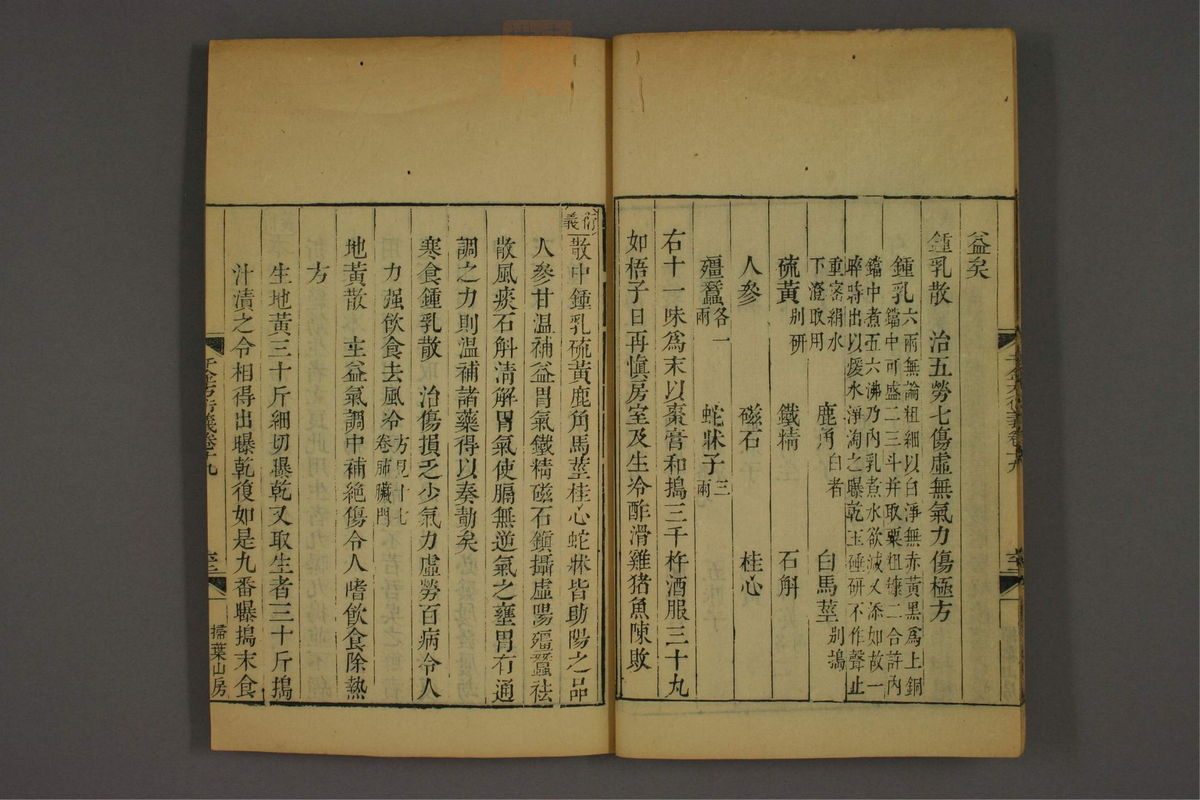 益矣
鍾乳散　治五勞七傷虛無氣力傷極方
鍾乳六兩無論粗細以白淨無赤黃黑爲上銅
鐺中可盛二三斗并取粟粗糠二合許內
鐺中煮五六沸乃內乳煮水欲減又添如故一
晬時出以暖水淨淘之曝乾玉硾研不作聲止
重密絹水
下澄取用　鹿角白者　白馬莖別搗
硫黃別研　鐵精　石斛
人參　磁石　桂心
殭蠶各一兩　蛇牀子三兩
右十一味爲末以棗膏和搗三千杵酒服三十丸
如梧子日再愼房室及生冷酢滑雞猪魚陳敗
衍義
散中鍾乳硫黃鹿角馬莖桂心蛇牀皆助陽之品
人參甘溫補益胃氣鐵精磁石鎭攝虛陽殭蠶祛
散風痰石斛清解胃氣使膈無逆氣之壅胃有通
調之力則溫補諸藥得以奏勣矣
寒食鍾乳散　治傷損乏少氣力虛勞百病令人
力强飲食去風冷方見十七卷肺臟門
地黃散　主益氣調中補絶傷令人嗜飲食除熱
方
生地黃三十斤細切曝乾又取生者三十斤搗
汁漬之令相得出曝乾復如是九番曝搗末食
千金方衍義卷十九
掃葉山房